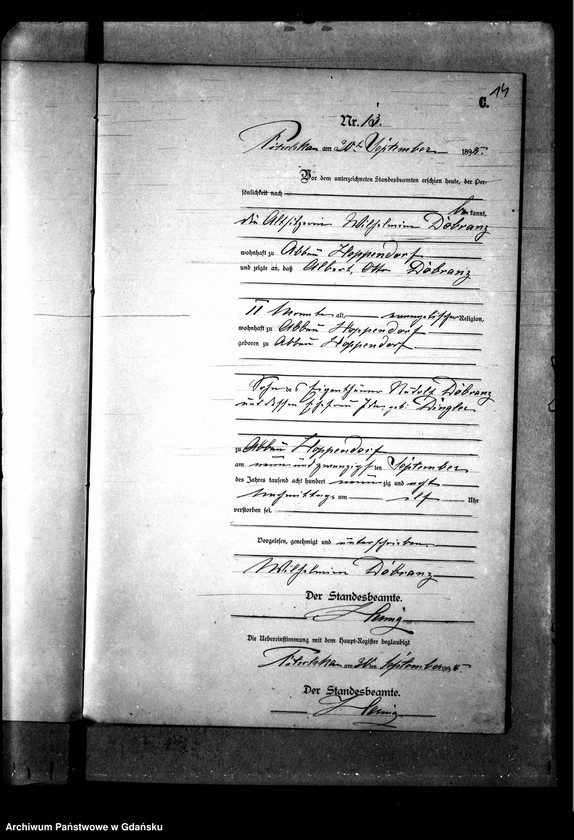 C.
14
Nr. 13.
am 30ten September 1898.
Vor dem unterzeichneten Standesbeamten erschien heute, der Per-
sönlichkeit nach
kannt,
die Altsitzerin Wilhelmine Döbranz
wohnhaft zu Abbau Hoppendorf
und zeigte an, daß Albert, Otto Döbranz
11 Monate alt, evangelischer Religion,
wohnhaft zu Abbau Hoppendorf
geboren zu Abbau Hoppendorf
Sohn des Eigenthümer Rudolf Döbranz
und dessen Ehefrau geb.
zu Abbau Hoppendorf
am neun und zwanzigsten September
des Jahres tausend acht hundert neunzig und acht
Nachmittags um elf Uhr
verstorben sei.
Vorgelesen, genehmigt und unterschrieben
Wilhelmine Döbranz
Der Standesbeamte.
Die Uebereinstimmung mit dem Haupt-Register beglaubigt
am 30ten September 1898
Der Standesbeamte.
Archiwum Państwowe w Gdańsku